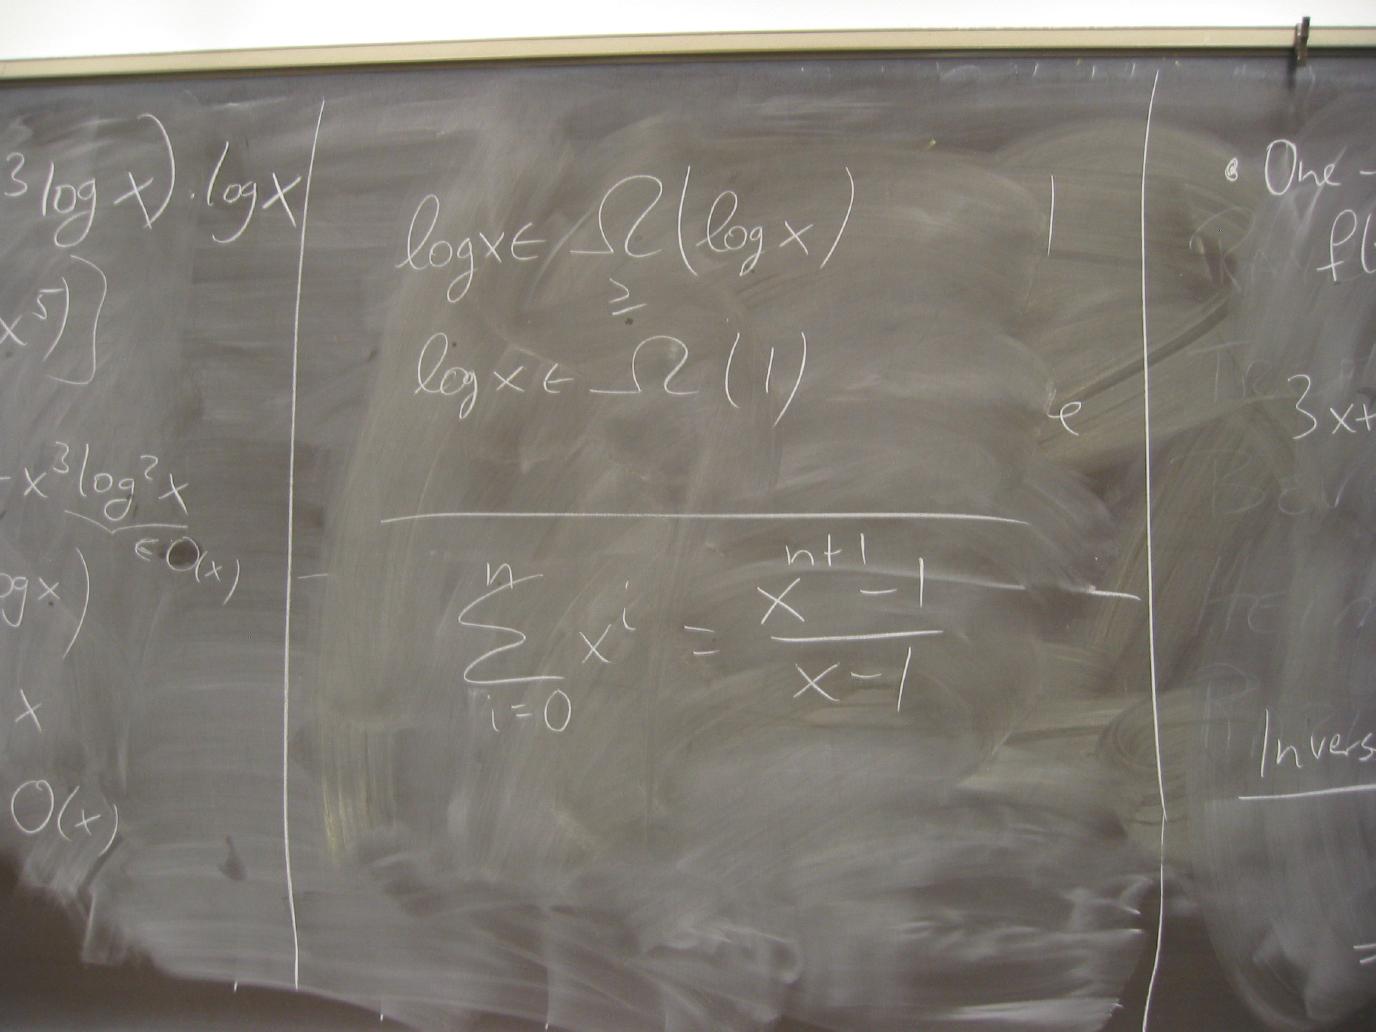 3 log x) · log x
x⁵)]
-x³ log² x
∈ O(x)
og x)
x
O(x)
log x ∈ Ω(log x)
≥
log x ∈ Ω(1)
∑ⁿᵢ₌₀ xⁱ = (xⁿ⁺¹ - 1)/(x - 1)
• One -
f(
3x+
Invers
=